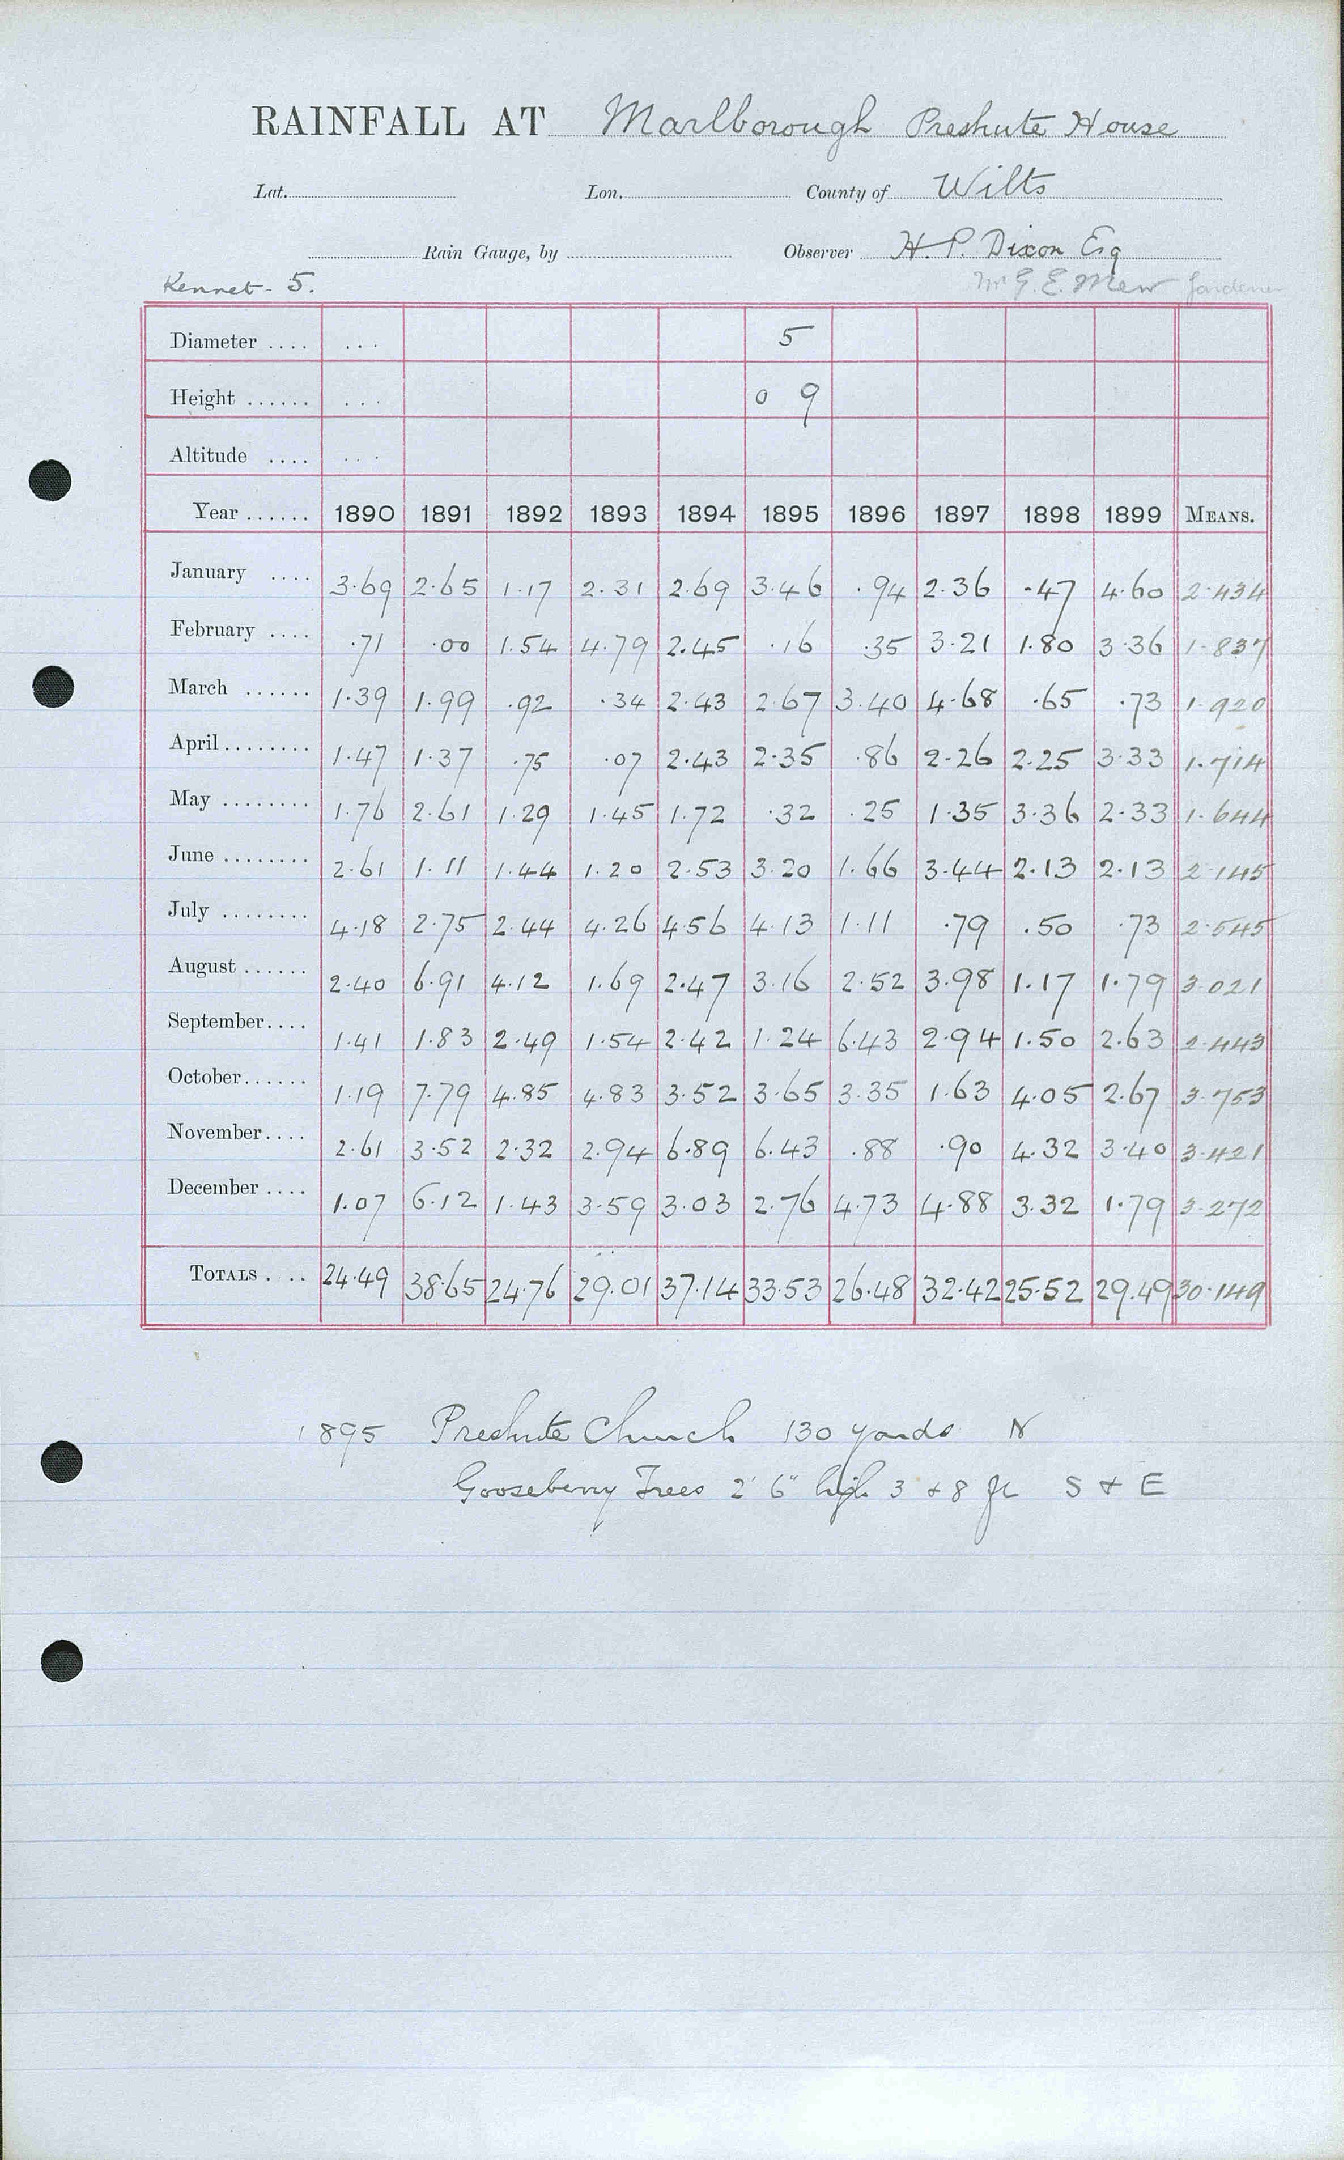 RAINFALL AT Marlborough Preshute House
Lat. Lon. County of Wilts
Rain Gauge, by Observer H. P. Dixon Esq
Kennet - 5. Mr G. E. Mew Gardener
Diameter .... ... 5
Height ...... ... 0 9
Altitude .... ...
Year ...... 1890 1891 1892 1893 1894 1895 1896 1897 1898 1899 MEANS.
January .... 3.69 2.65 1.17 2.31 2.69 3.46 .94 2.36 .47 4.60 2.434
February .... .71 .00 1.54 4.79 2.45 .16 .35 3.21 1.80 3.36 1.837
March ...... 1.39 1.99 .92 .34 2.43 2.67 3.40 4.68 .65 .73 1.920
April ........ 1.47 1.37 .75 .07 2.43 2.35 .86 2.26 2.25 3.33 1.714
May ........ 1.76 2.61 1.29 1.45 1.72 .32 .25 1.35 3.36 2.33 1.644
June ........ 2.61 1.11 1.44 1.20 2.53 3.20 1.66 3.44 2.13 2.13 2.145
July ........ 4.18 2.75 2.44 4.26 4.56 4.13 1.11 .79 .50 .73 2.545
August ...... 2.40 6.91 4.12 1.69 2.47 3.16 2.52 3.98 1.17 1.79 3.021
September .... 1.41 1.83 2.49 1.54 2.42 1.24 6.43 2.94 1.50 2.63 2.443
October ...... 1.19 7.79 4.85 4.83 3.52 3.65 3.35 1.63 4.05 2.67 3.753
November .... 2.61 3.52 2.32 2.94 6.89 6.43 .88 .90 4.32 3.40 3.421
December .... 1.07 6.12 1.43 3.59 3.03 2.76 4.73 4.88 3.32 1.79 3.272
TOTALS . .. 24.49 38.65 24.76 29.01 37.14 33.53 26.48 32.42 25.52 29.49 30.149
1895 Preshute Church 130 yards N
Gooseberry Trees 2' 6" high 3 + 8 ft S + E